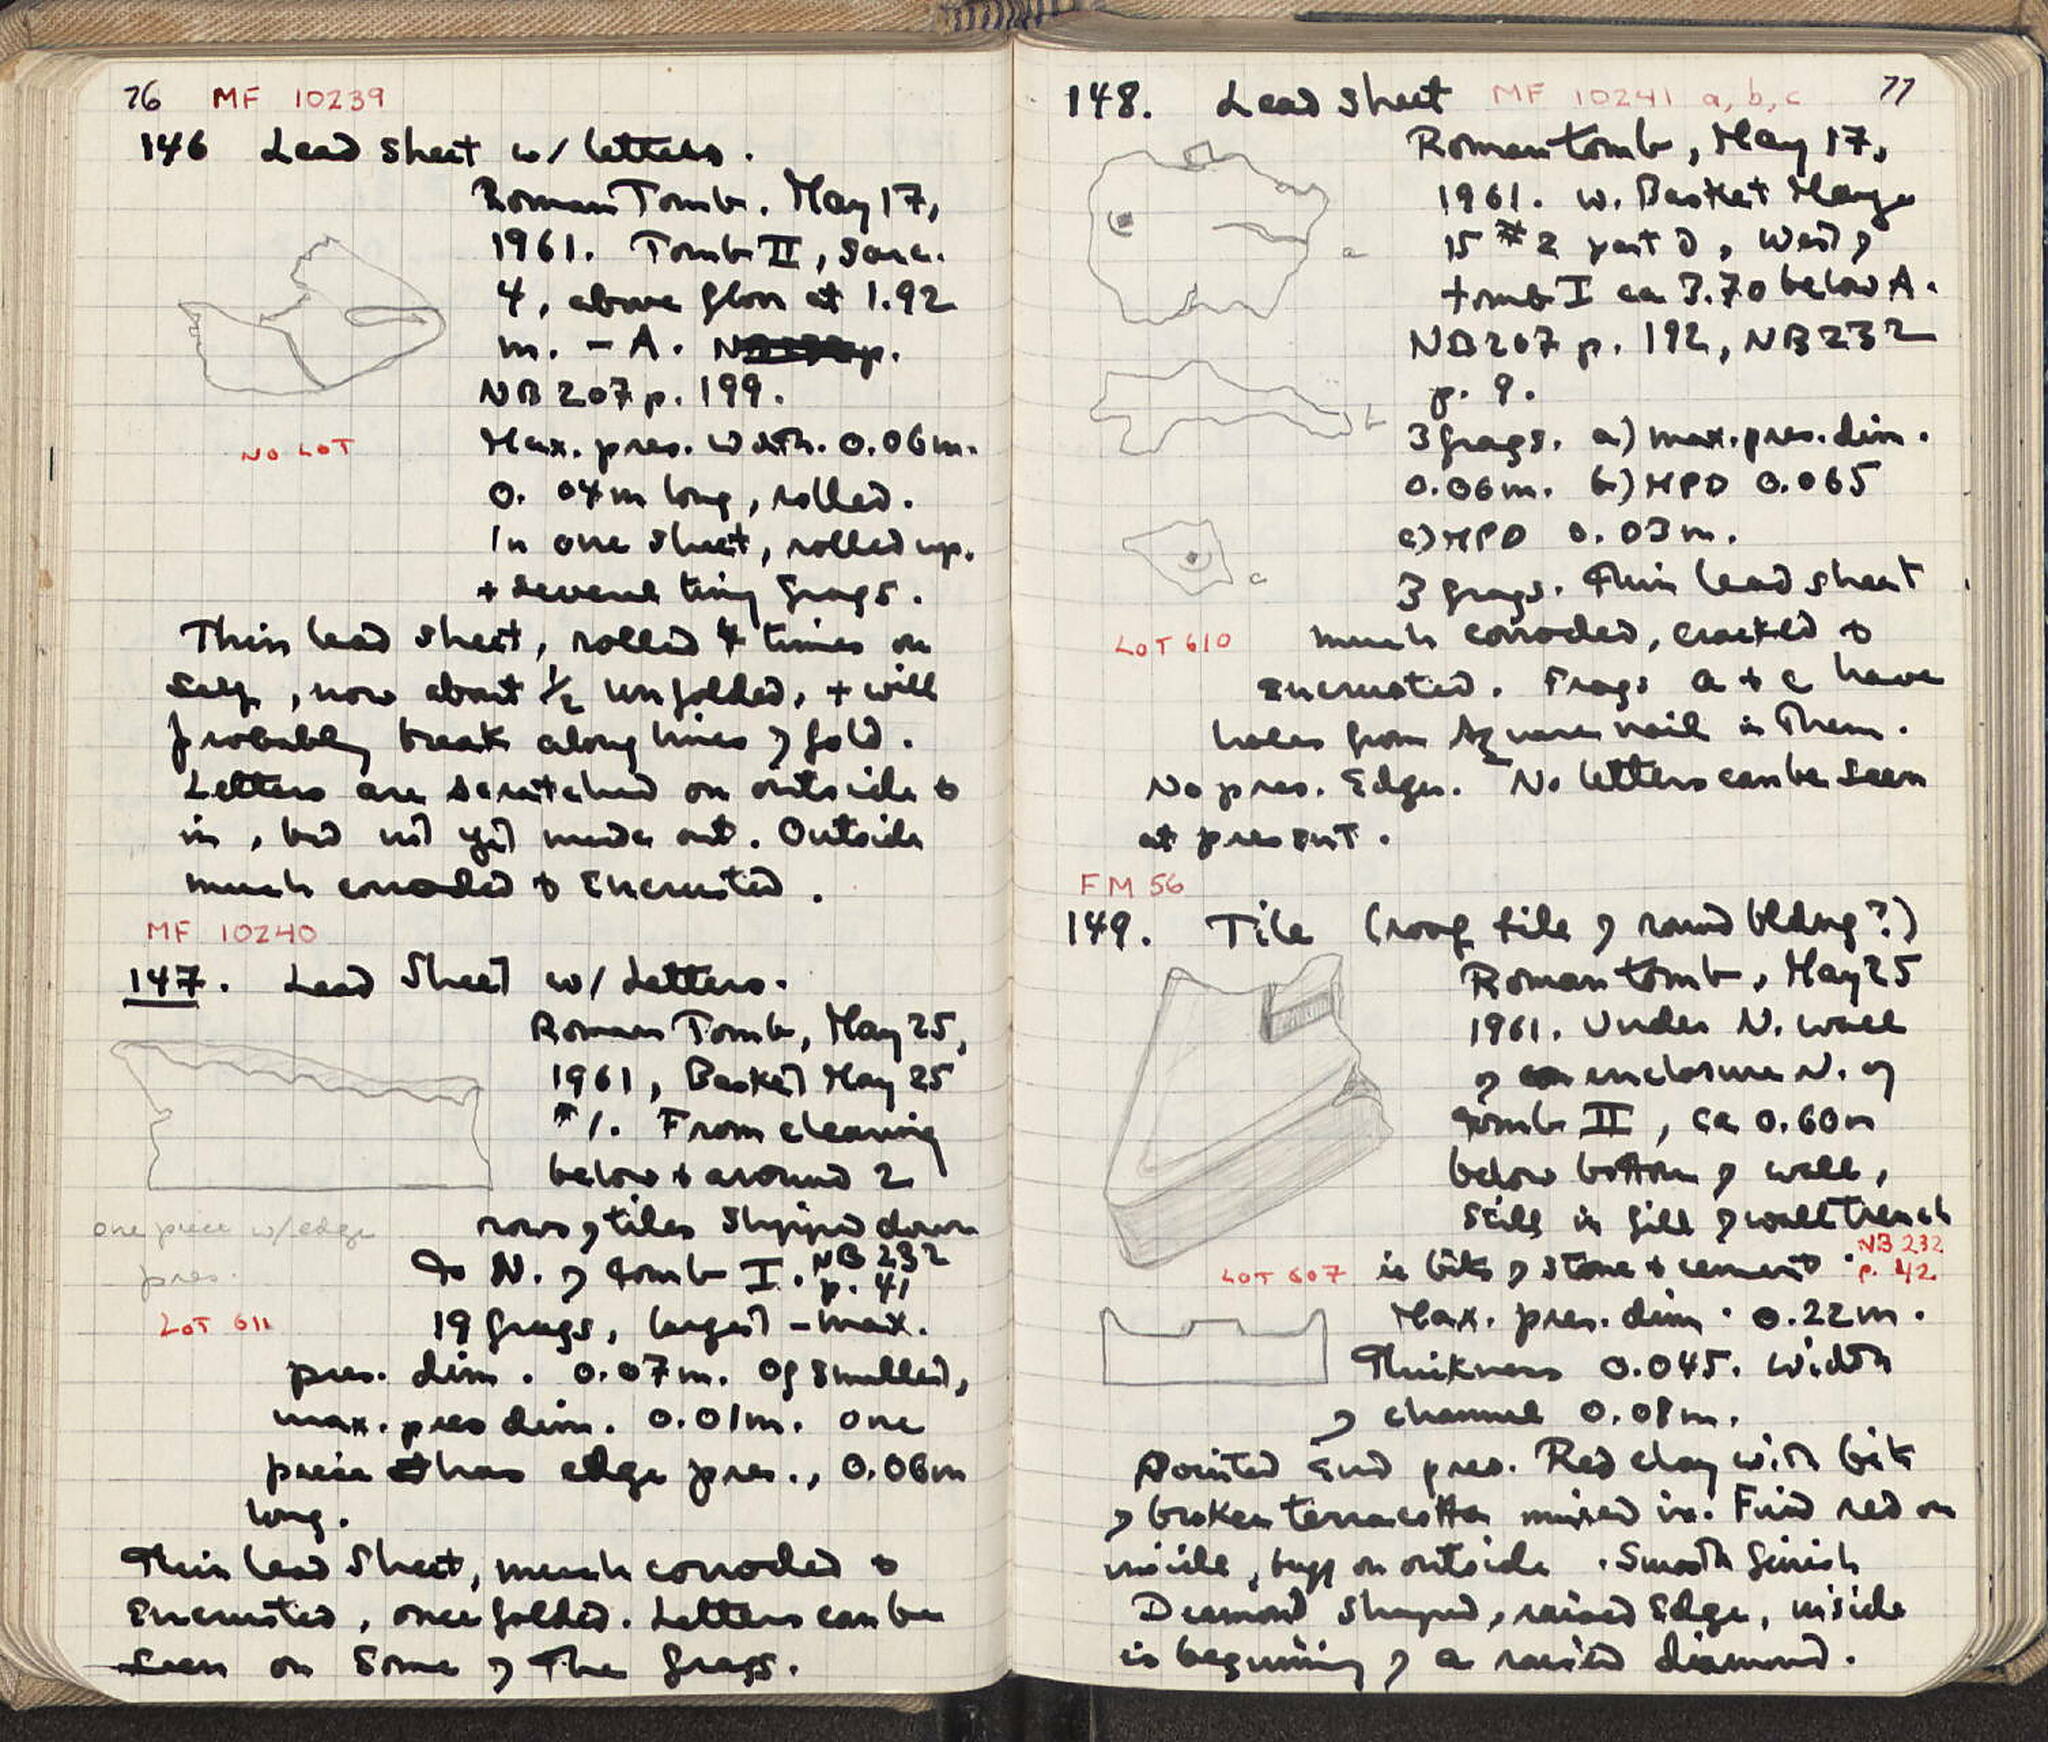 76 MF 10239
146 Lead sheet w/ letters.
Roman Tomb. May 17,
1961. Tomb II, Sarc.
4, above floor at 1.92
m. - A. p.
NB 207 p. 199.
NO LOT
Max. pres. width. 0.06m.
0.04m long, rolled.
In one sheet, rolled up.
+ several tiny frags.
Thin lead sheet, rolled 4 times on
self, now about 1/2 unfolded, + will
probably break along lines of fold.
Letters are scratched on outside &
in, but not yet made out. Outside
much corroded & encrusted.
MF 10240
147. Lead Sheet w/ Letters.
Roman Tomb, May 25,
1961, Basket May 25
#1. From cleaning
below & around 2
rows of tiles slipped down
to N. of tomb I. NB 232
p. 41
one piece w/edge
pres.
LOT 611
19 frags, largest - max.
pres. dim. 0.07m. Of smallest,
max. pres dim. 0.01m. One
piece has edge pres., 0.06m
long.
Thin lead sheet, much corroded &
encrusted, once folded. Letters can be
seen on some of the frags.
77
148. Lead sheet MF 10241 a, b, c
Roman tomb, May 17,
1961. w. Basket May
15 #2 part D, West of
tomb I ca 3.70 below A.
NB 207 p. 192, NB 232
p. 9.
a
b
c
3 frags. a) max. pres. dim.
0.06m. b) MPD 0.065
c) MPD 0.03m.
3 frags. Thin lead sheet
LOT 610
much corroded, cracked &
encrusted. Frags a & c have
holes from square nail in them.
No pres. Edges. No letters can be seen
at present.
FM 56
149. Tile (roof tile of round bldng?)
Roman tomb, May 25
1961. Under N. wall
of enclosure N. of
tomb II, ca 0.60m
below bottom of wall,
still in fill of wall trench
ie bits of stone & cement. NB 232
p. 42
LOT 607
Max. pres. dim. 0.22m.
Thickness 0.045. Width
of channel 0.08m.
Pointed end pres. Red clay with bits
of broken terracotta mixed in. Fired red on
inside, buff on outside. Smooth finish
Diamond shaped, raised edge, inside
is beginning of a raised diamond.